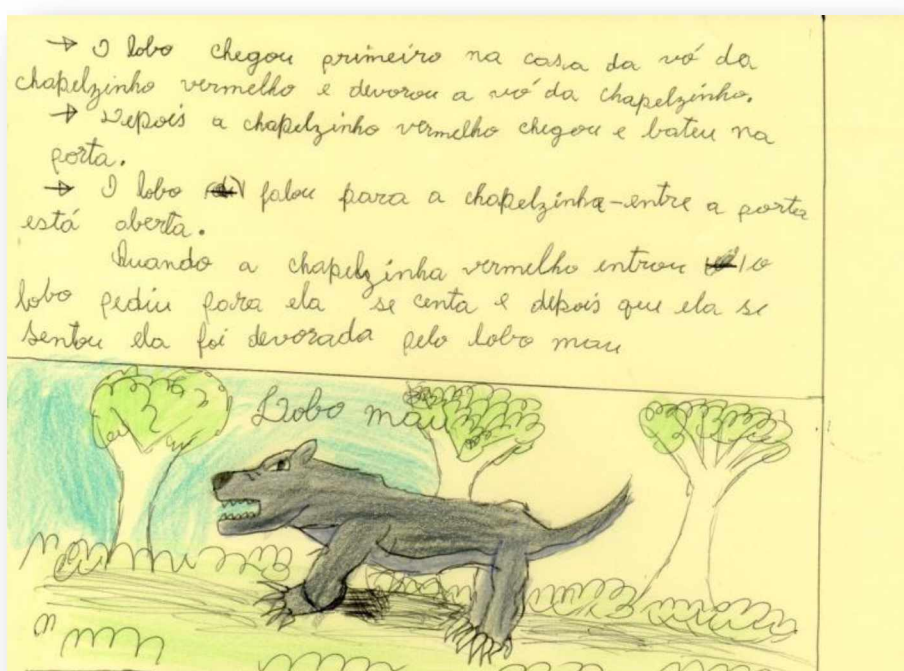 → O lobo chegou primeiro na casa da vó da
chapelzinho vermelho e devorou a vó da chapelzinho.
→ Depois a chapelzinho vermelho chegou e bateu na
porta.
→ O lobo falou para a chapelzinha-entre a porta
está aberta.
Quando a chapelzinha vermelho entrou o
lobo pediu para ela se centa e depois que ela se
sentou ela foi devorada pelo lobo mau
Lobo mau